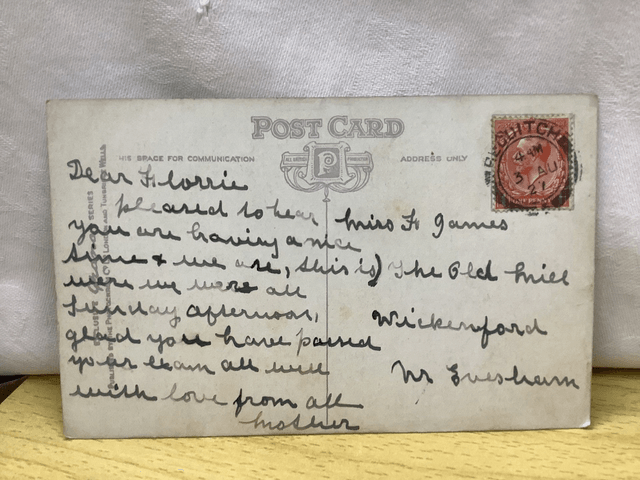 POST CARD
THIS SPACE FOR COMMUNICATION
ADDRESS ONLY
P
4 PM
3 AU
21
Dear Florrie
pleased to hear
you are having a nice
time & we are, this is
were we were all
Sunday afternoon,
glad you have passed
your exam all well
with love from all
mother
Miss F James
The Old Mill
Wickenford
Nr Evesham